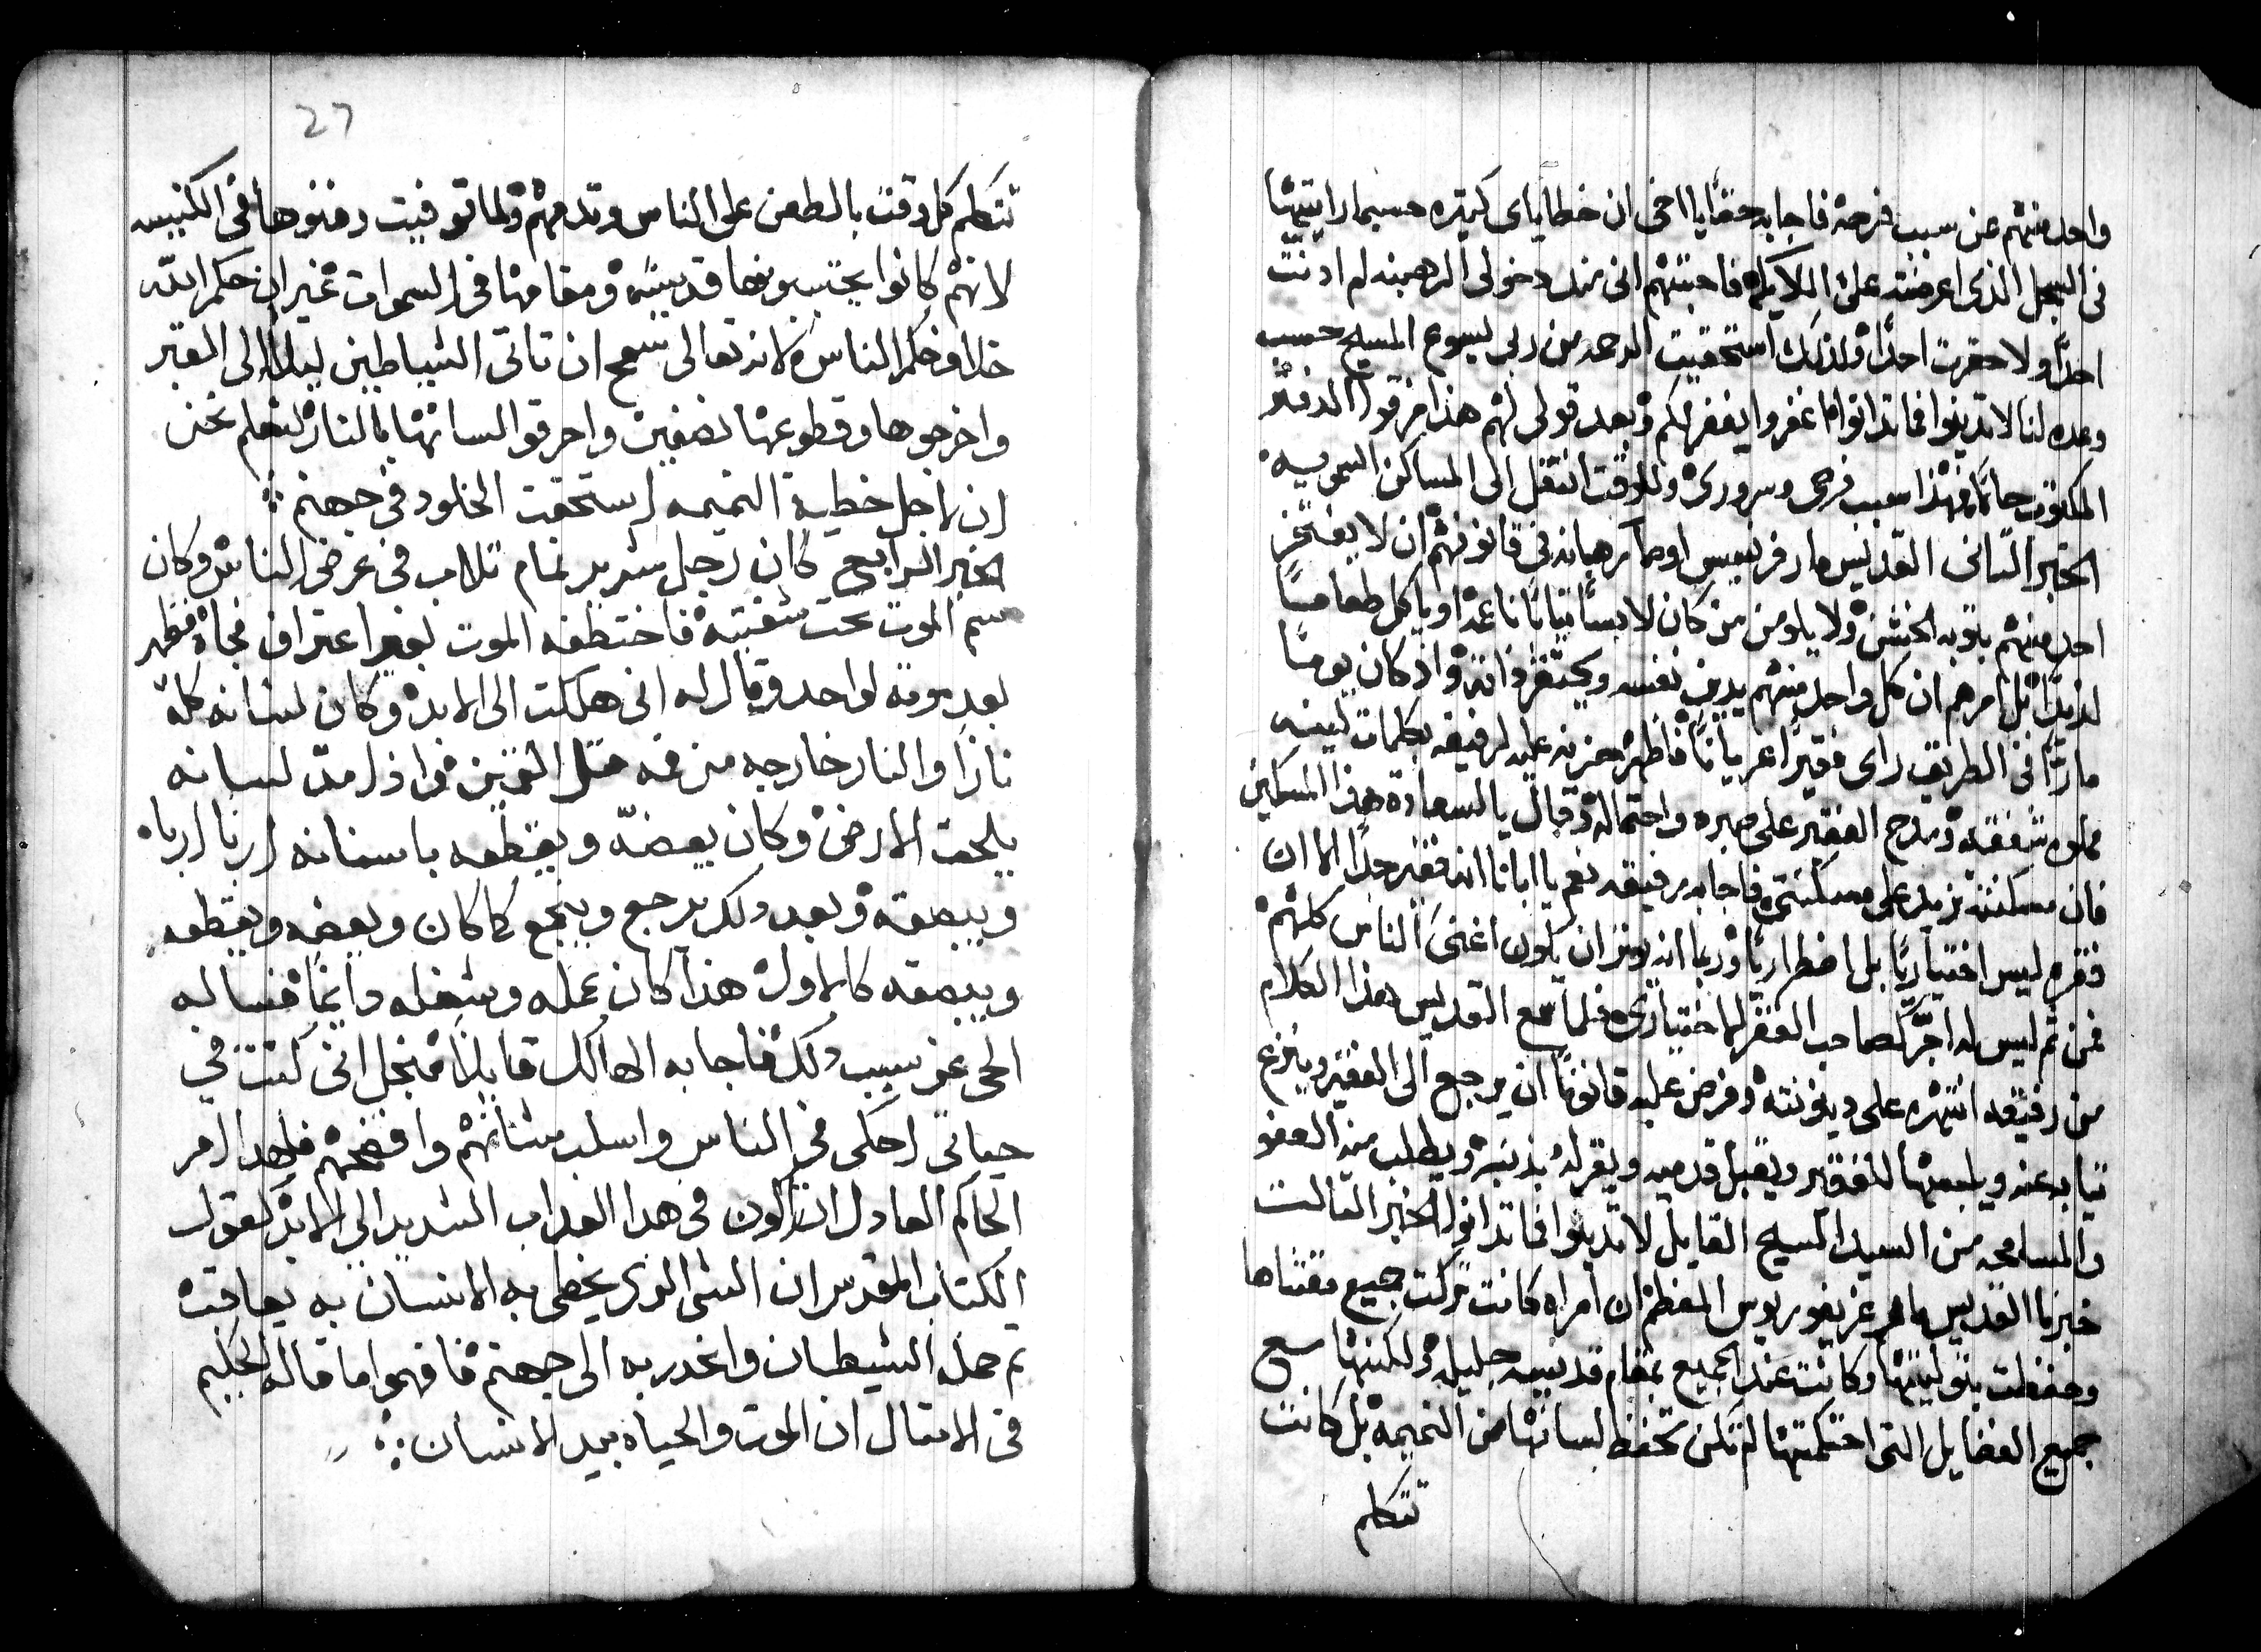 واحد منهم عن سبب فرحه فاجابه حقا يا اخى ان خطاياى كتيره حسبما رايتها
فى السجل الذى اعرضته على الملايكه فاجبتهم انى منذ دخولى الرهبنه لم ادنت
احدًا ولا حقرت احدًا ولذلك استحقيت الرحمه من ربى يسوع المسيح حسب
وعده لنا لا تدينوا فما تدانوا اغفروا يغفر لكم وبعد قولى لهم هذا مزقوا الدفتر
المكتوب حالًا فهذا سبب فرحى وسرورى وللوقت انتقل الى المساكن السمويه
الخبر التانى القديس مار فرنسيس اوصا رهبانه فى قانونهم ان لا يفتخر
احد منهم بتوبه الخشن ولا يلومن من كان لابسًا تيابًا ناعمه او ياكل طعامًا
لذيذًا بل امرهم ان كل واحد منهم يدين نفسه ويحتقر ذاته واذ كان يومًا
مارًا فى الطريق راى فقيرًا عريانًا فاظهر حزنه عليه لرفيقه بكلمات لينه
مملوه شفقه ومدح الفقير على صبره واحتماله وقال يا لسعادة هذا المسكين
فان مسكنته تزيد على مسكنتى فاجابه رفيقه نعم يا ابانا انه فقير جدًا الا ان
فقره ليس اختياريًا بل اضطراريًا وربما انه يوتر ان يكون اغنى الناس كلهم
فمن تم ليس له اجرٌ كصاحب الفقر الاختيارى فلما سمع القديس هذا الكلام
من رفيقه انتهره على دينونته وفرض عليه قانونًا ان يرجع الى الفقير وينزع
تيابه عنه ويلبسها للفقير ويقبل قدميه ويقر له بذنبه ويطلب منه العفو
والمسامحه من السيد المسيح القايل لا تدينوا فما تدانوا الخبر التالت
خبرنا القديس مار غريغوريوس المعظم ان امراه كانت تركت جميع مقتناها
وحفظت بتوليتها وكانت عند الجميع بمقام قديسه جليله ولكنها مع
جميع الفضايل التى احتكمتها لم تكن تحفظ لسانها من النميمه بل كانت
تتكلم
27
تتكلم كل وقت بالطعن على الناس وتدمهم ولما توفيت دفنوها فى الكنيسه
لانهم كانوا يحتسبونها قديسه ومقامها فى السموات غير ان حكم الله
خلاف حكم الناس لانه تعالى سمح ان تاتى الشياطين ليلًا الى القبر
واخرجوها وقطوعها نصفين واحرقوا لسانها بالنار لنعلم نحن
ان لاجل خطية النميمه استحقت الخلود فى جهنم
الخبر الرابع كان رجل شرير نمام تلاب فى عرض الناس وكان
سم الموت تحت شفتيه فاختطفه الموت بغير اعتراف فجاه فظهر
بعد موته لواحد وقال له انى هلكت الى الابد وكان لسانه كله
نارًا والنار خارجه من فمه متل التنين واذا مدّ لسانه
يلحق الارض وكان يعضّه ويقطعه باسنانه اربا اربا
ويبصقه وبعد دلك يرجع وينجمع كما كان ويعضه ويقطعه
ويبصقه كالاول هذا كان عمله وشغله دايمًا فساله
الحى عن سبب دلك فاجابه الهالك قايلًا منجل انى كنت فى
حياتى احكى فى الناس واسلب مثانهم وافضحهم فلهدا امر
الحاكم العادل ان اكون فى هدا العداب الشديد الى الابد كقول
الكتاب المقدس ان الشى الدى يخطى به الانسان به يعاقب
تم حمله الشيطان وانحدر به الى جهنم فافهموا ما قاله الحكيم
فى الامتال ان الموت والحياه بيد الانسان